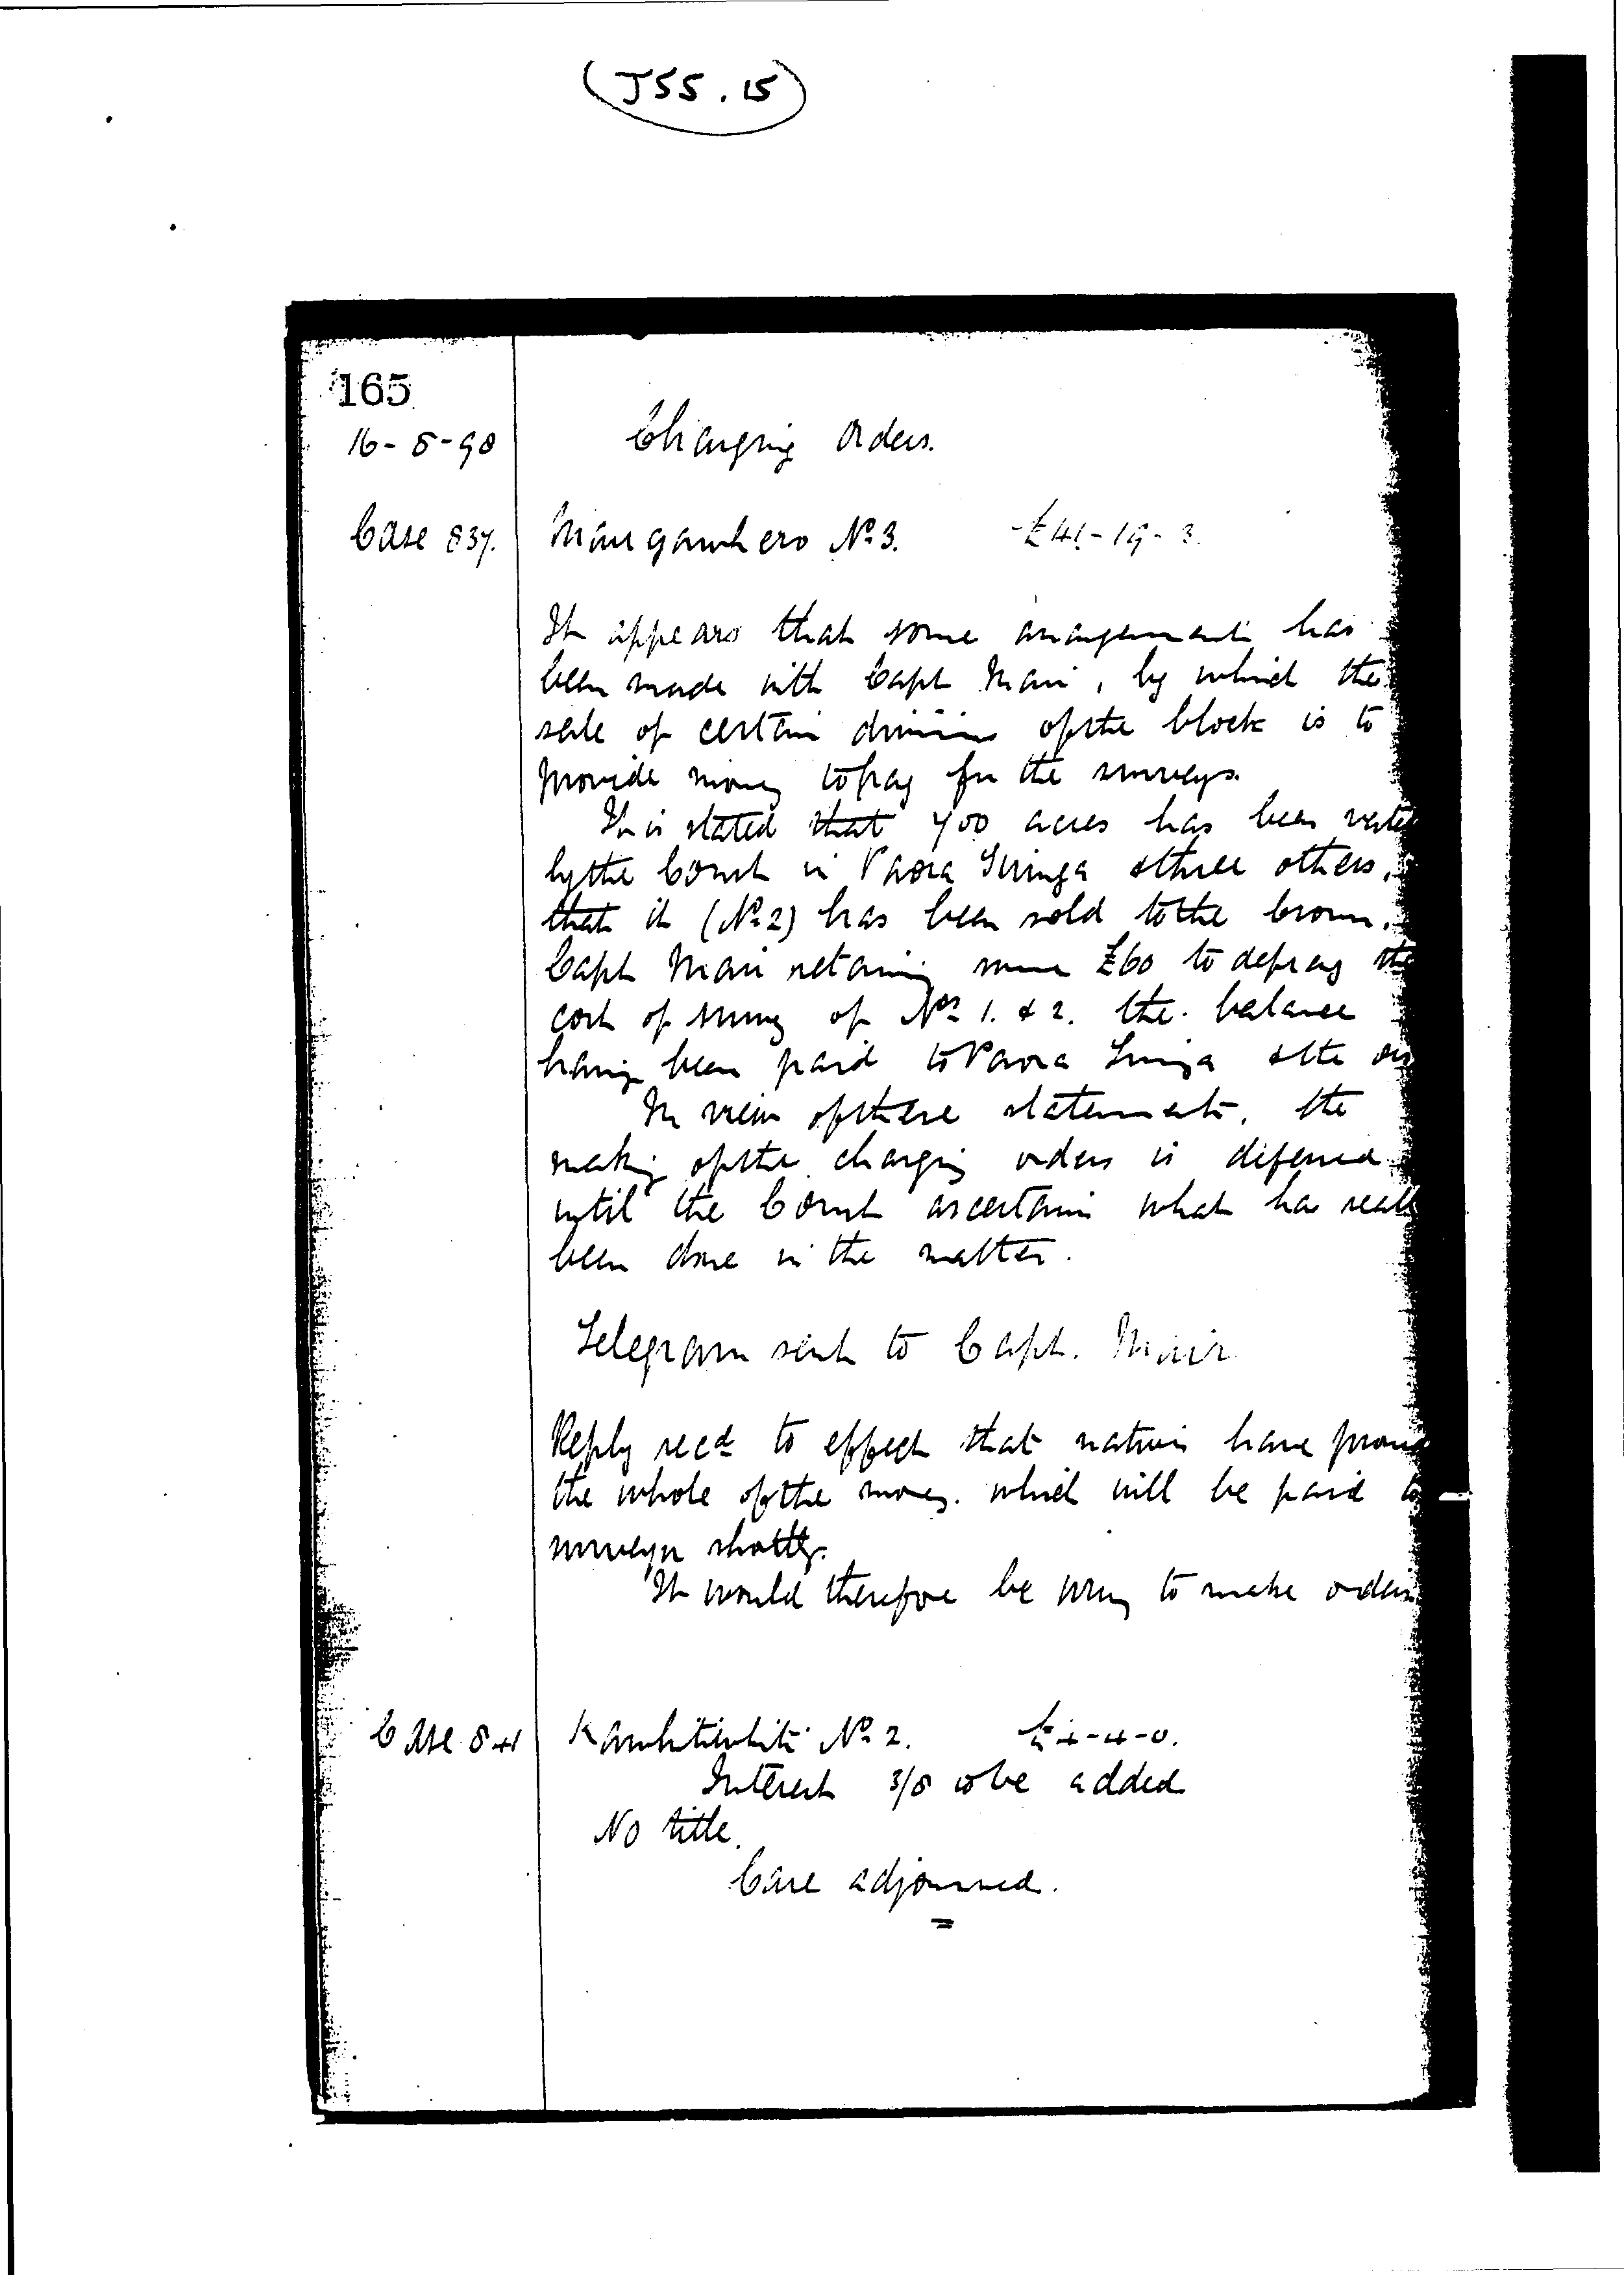 J55.15
165
16-8-98 Charging Orders.
Case 837. Maungawhero No 3. £41-19-3.
It appears that some arrangement has
been made with Capt Mair, by which the
sale of certain divisions of the block is to
provide money to pay for the surveys.
It is stated that 400 acres has been veste
by the Court in Paora Tiringa & three others,
that it (No 2) has been sold to the Crown.
Capt Mair retaining some £60 to defray the
cost of survey of Nos 1. & 2. the balance
having been paid to Paora & the
In view of these statements, the
making of the charging orders is deferred
until the Court ascertains what has reall
been done in the matter.
Telegram sent to Capt. Mair
Reply recd to effect that natives have
the whole of the money. which will be paid to
surveyor shortly.
It would therefore be wrong to make orders
Case 841 Kawhitiwhiti No 2. -4-0.
Interest 3/8 to be added
No title.
Case adjourned.